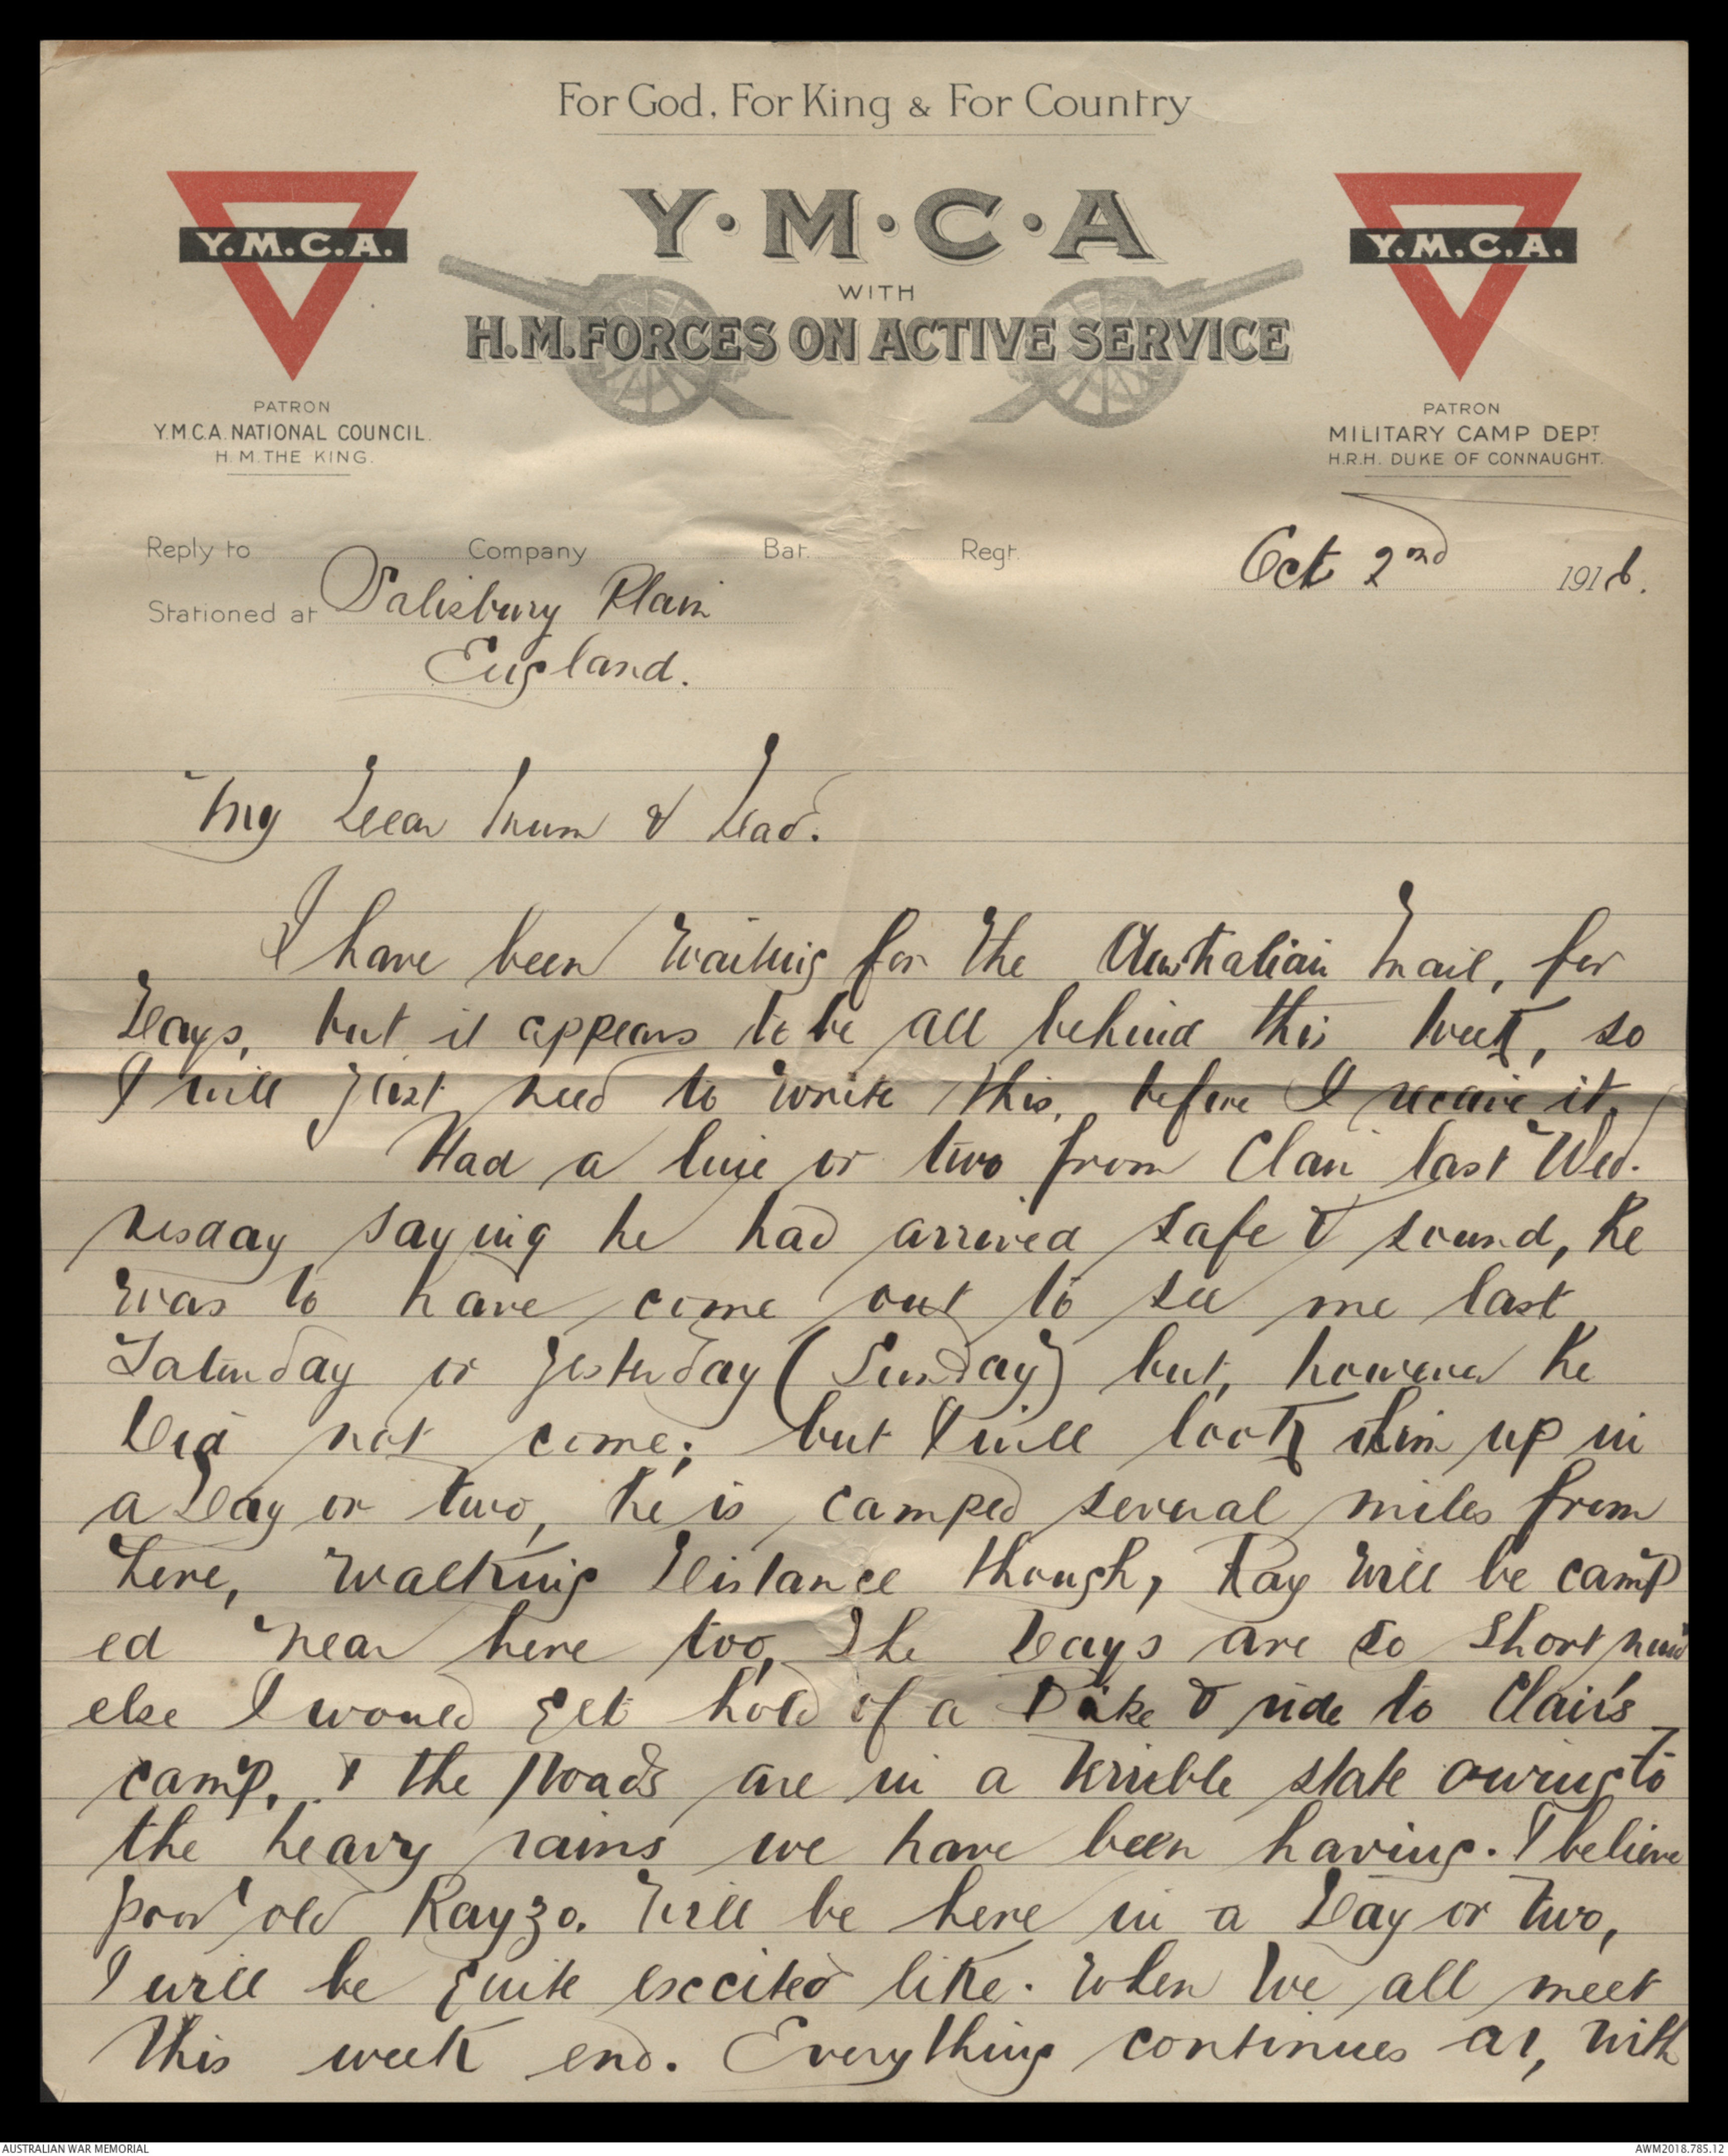 For God, For King & For Country
Y·M·C·A
Y.M.C.A.
Y.M.C.A.
WITH
H.M. FORCES ON ACTIVE SERVICE
PATRON
Y.M.C.A. NATIONAL COUNCIL.
H.M. THE KING.
PATRON
MILITARY CAMP DEPT
H.R.H. DUKE OF CONNAUGHT.
Reply to Company Bat. Regt. Oct 2nd 1916.
Stationed at Salisbury Plain
England.
My Dear Mum & Dad.
I have been waiting for the Australian Mail, for
Days, but it appears to be all behind this week, so
I will just need to write this, before I receive it.
Had a line or two from Clair last Wed.
nesday saying he had arrived safe & sound, he
was to have come out to see me last
Saturday or yesterday (Sunday) but, however he
Did not come; but I will look him up in
a Day or two, he is camped several miles from
here, walking Distance though, Ray will be camp
ed near here too, The Days are so short now
else I would get hold of a Bike & ride to Clair's
camp, & the Roads are in a terrible state owing to
the heavy rains we have been having. I believe
poor old Rayzo. will be here in a Day or two,
I will be quite excited like. when we all meet
this week end. Everything continues A1, with
AUSTRALIAN WAR MEMORIAL
AWM2018.785.12